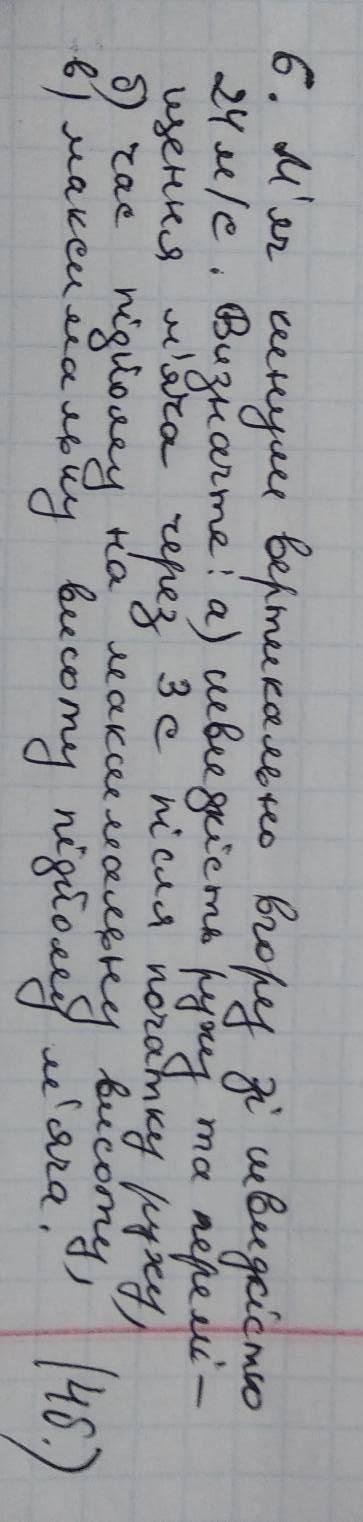 6. М'яч кинули вертикально вгору зі швидкістю
24 м/с. Визначте: а) швидкість руху та перемі-
щення м'яча через 3 с після початку руху,
б) час підйому на максимальну висоту,
в) максимальну висоту підйому м'яча. (4б.)